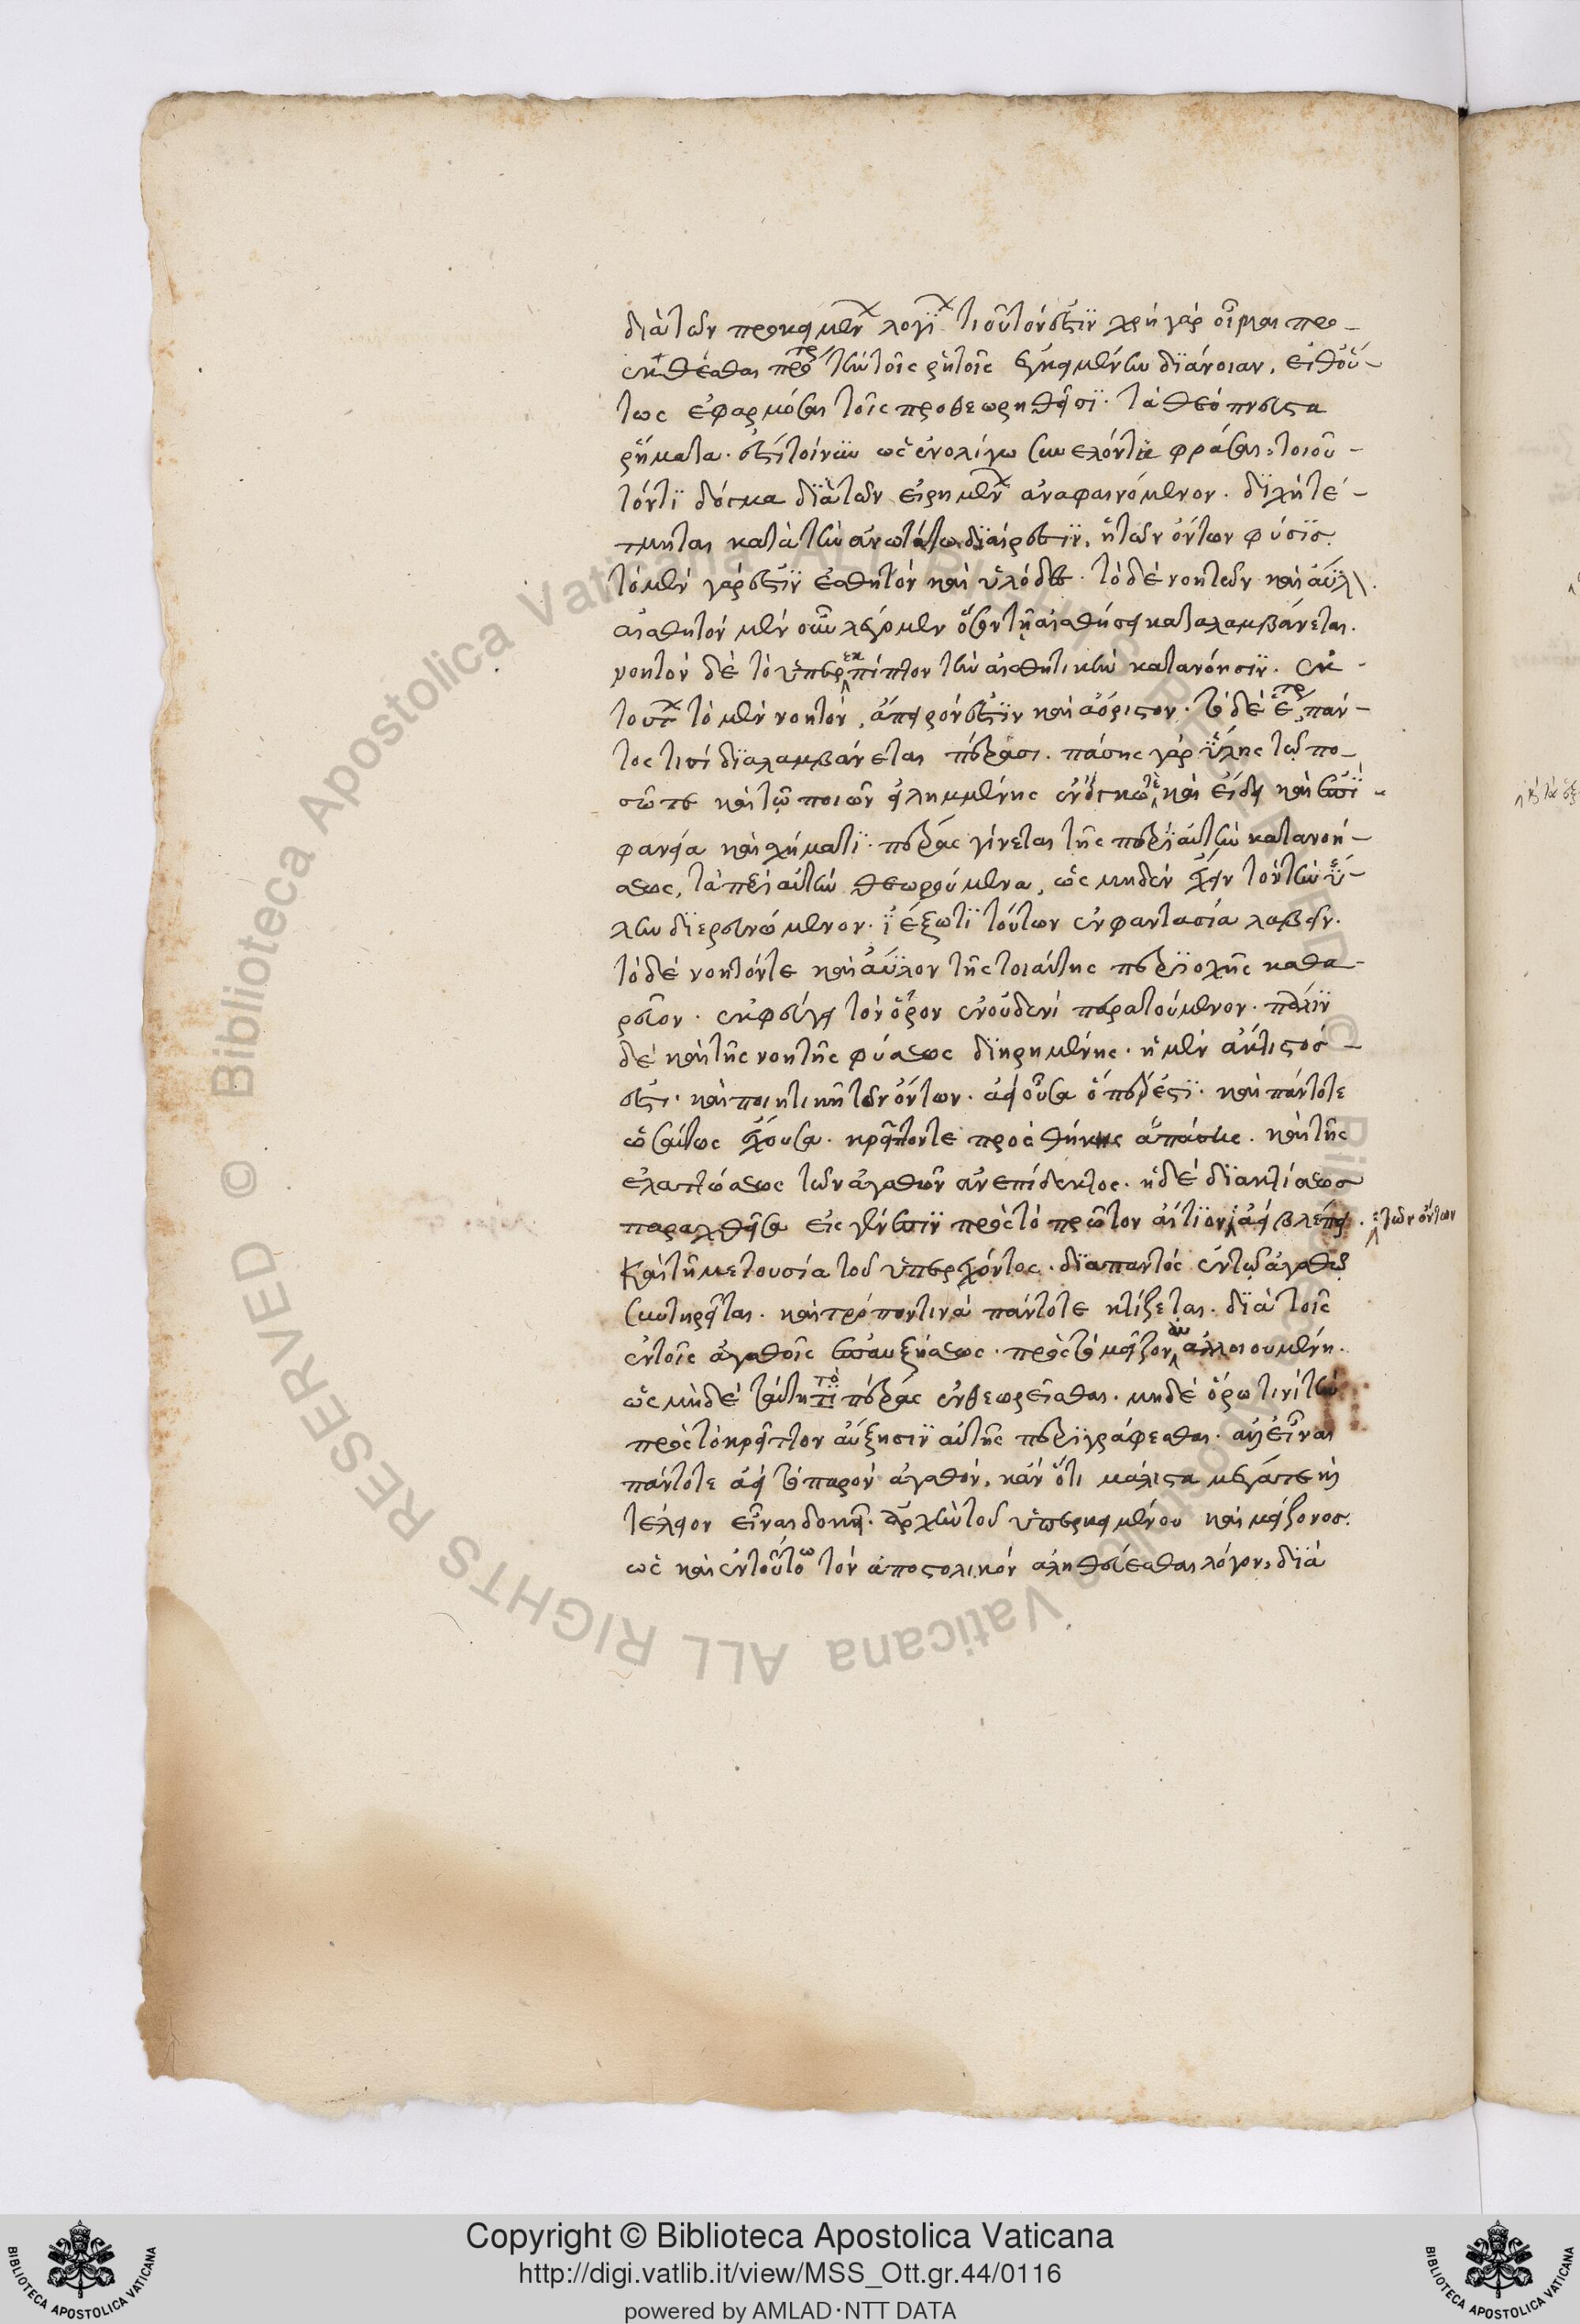 διὰ τῶν προκειμένων λογίων τοιοῦτόν ἐστιν χρὴ γὰρ οἶμαι προ-
εκθέσθαι πρότερον τὴν τοῖς ῥητοῖς ἐγκειμένην διάνοιαν, εἶθ οὕ-
τως ἐφαρμόσαι τοῖς προθεωρηθεῖσι. τὰ θεόπνευστα
ῥήματα. ἔστι τοίνυν ὡς ἐν ὀλίγω συνελόντα φράσαι, τοιοῦ-
τόν τι δόγμα διὰ τῶν εἰρημένων ἀναφαινόμενον. διχῆ τέ-
τμηται κατὰ τὴν ἀνωτάτω διαίρεσιν, ἡ τῶν ὄντων φύσις.
τὸ μὲν γάρ ἐστιν ἐσθητὸν καὶ ὑλῶδες. τὸ δὲ νοητόν καὶ ἄϋλον.
αἰσθητὸν μὲν οὖν λέγομεν ὅσον τῆ αἰσθήσει καταλαμβάνεται.
νοητὸν δὲ τὸ ὑπερεκπίπτον τὴν αἰσθητικὴν κατανόησιν. ἐκ
τούτων τὸ μὲν νοητὸν, ἄπειρόν ἐστιν καὶ ἀόριστον. τὸ δὲ ἕτερον παν-
τός τισι διαλαμβάνεται πέρασι. πάσης γὰρ ὕλης τῶ πο-
σῶ τε καὶ τῶ ποιῶ εἰλημμένης ἐν ὄγκω τὲ καὶ εἴδει καὶ ἐπι-
φανεία καὶ σχήματι. πέρας γίνεται τῆς περὶ αὐτὴν κατανοή-
σεως, τὰ περὶ αὐτὴν θεωρούμενα, ὡς μηδὲν ἔχειν τὸν τὴν ὕ-
λην διερευνώμενον. ἢ ἔξω τι τούτων ἐν φαντασία λαβεῖν.
τὸ δὲ νοητόν τε καὶ ἄϋλον τῆς τοιαύτης περιοχῆς καθα-
ρεῦον. ἐκφεύγει τὸν ὅρον ἐν οὐδενὶ περατούμενον. πάλιν
δὲ καὶ τῆς νοητῆς φύσεως διηρημένης. ἡ μὲν ἄκτιστός
ἐστι. καὶ ποιητικὴ τῶν ὄντων. ἀεὶ οὖσα ὅπερ ἐστί. καὶ πάντοτε
ὡσαύτως ἔχουσα. κρείττων τε προσθήκης ἁπάσης. καὶ τῆς
ἐλαττώσεως τῶν ἀγαθῶν ἀνεπίδεκτος. ἡ δὲ διὰ κτίσεως
παραχθεῖσα εἰς γένεσιν πρὸς τὸ πρῶτον αἴτιον ἀεὶ βλέπει. τῶν ὄντων
Καὶ τῆ μετουσία τοῦ ὑπερέχοντος. διαπαντὸς ἐν τῶ ἀγαθῶ
συντηρεῖται. καὶ τρόπον τινὰ πάντοτε κτίζεται. διὰ τοῖς
ἐν τοῖς ἀγαθοῖς ἐπαυξήσεως. πρὸς τὸ μεῖζον ἀλλοιουμένη.
ὡς μηδὲ ταύτη τι πέρας ἐνθεωρεῖσθαι. μηδὲ ὅρω τινὶ τὴν
πρὸς τὸ κρεῖττον αὔξησιν αὐτῆς περιγράφεσθαι. ἀλλ εἶναι
πάντοτε ἀεὶ τὸ παρὸν ἀγαθὸν, κἂν ὅτι μάλιστα μέγα τε καὶ
τέλειον εἶναι δοκεῖ. ἀρχὴν τοῦ ὑπερκειμένου καὶ μείζονος.
ὡς καὶ ἐν τούτω τὸν ἀποστολικὸν ἀληθεύεσθαι λόγον, διὰ
Copyright © Biblioteca Apostolica Vaticana
http://digi.vatlib.it/view/MSS_Ott.gr.44/0116
powered by AMLAD·NTT DATA